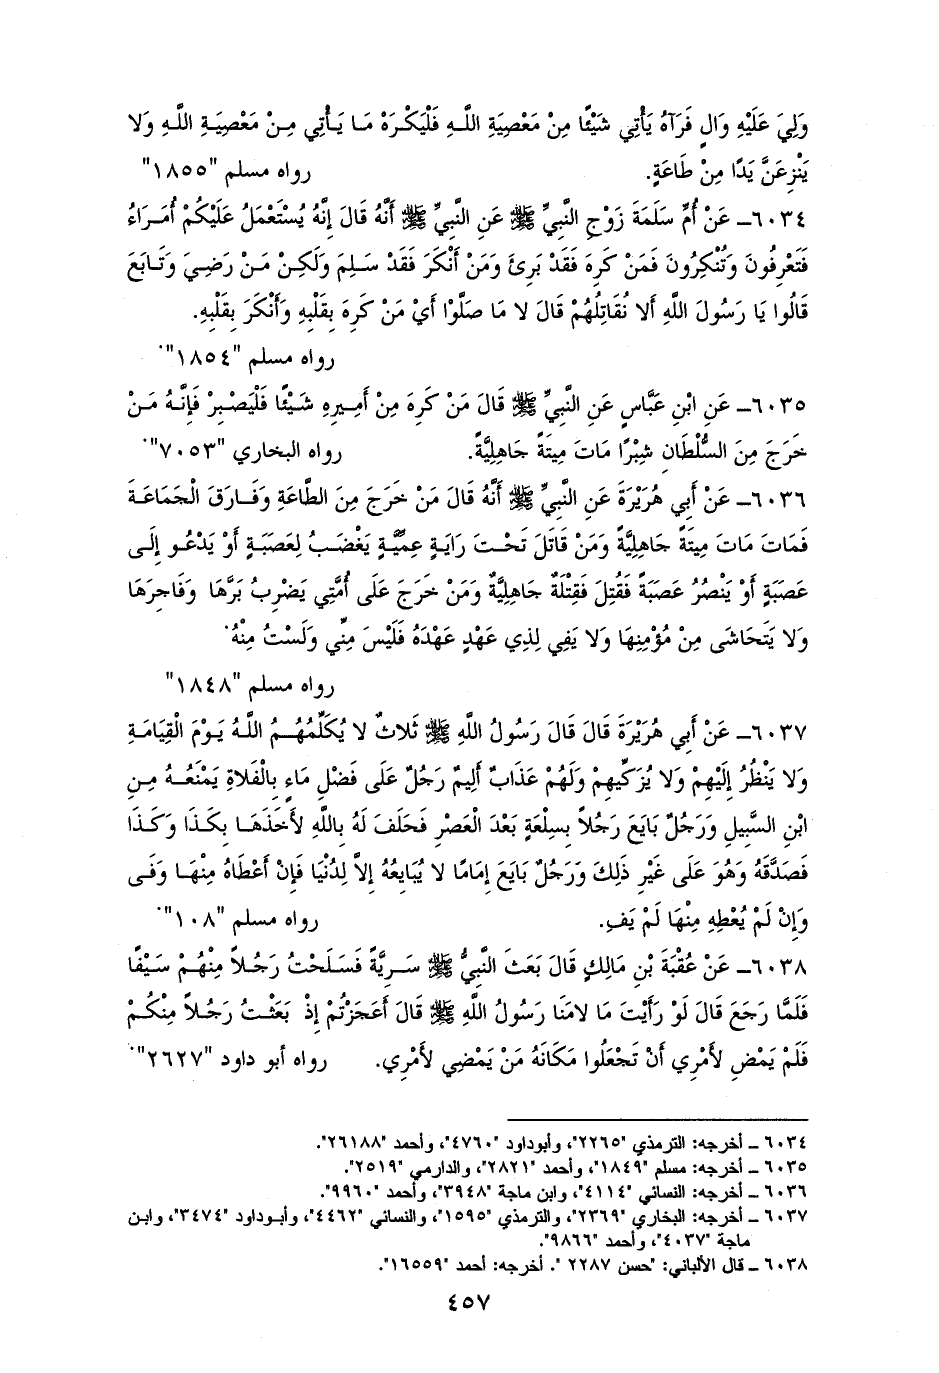 وَلِيَ عَلَيْهِ وَالٍ فَرَآهُ يَأْتِي شَيْئًا مِنْ مَعْصِيَةِ اللَّهِ فَلْيَكْرَهْ مَا يَأْتِي مِنْ مَعْصِيَةِ اللَّهِ وَلا
يَنْزِعَنَّ يَدًا مِنْ طَاعَةٍ. رواه مسلم "١٨٥٥"
٦٠٣٤ـ عَنْ أُمِّ سَلَمَةَ زَوْجِ النَّبِيِّ ﷺ عَنِ النَّبِيِّ ﷺ أَنَّهُ قَالَ إِنَّهُ يُسْتَعْمَلُ عَلَيْكُمْ أُمَرَاءُ
فَتَعْرِفُونَ وَتُنْكِرُونَ فَمَنْ كَرِهَ فَقَدْ بَرِئَ وَمَنْ أَنْكَرَ فَقَدْ سَلِمَ وَلَكِنْ مَنْ رَضِيَ وَتَابَعَ
قَالُوا يَا رَسُولَ اللَّهِ أَلا نُقَاتِلُهُمْ قَالَ لا مَا صَلَّوْا أَيْ مَنْ كَرِهَ بِقَلْبِهِ وَأَنْكَرَ بِقَلْبِهِ.
رواه مسلم "١٨٥٤".
٦٠٣٥ـ عَنِ ابْنِ عَبَّاسٍ عَنِ النَّبِيِّ ﷺ قَالَ مَنْ كَرِهَ مِنْ أَمِيرِهِ شَيْئًا فَلْيَصْبِرْ فَإِنَّهُ مَنْ
خَرَجَ مِنَ السُّلْطَانِ شِبْرًا مَاتَ مِيتَةً جَاهِلِيَّةً. رواه البخاري "٧٠٥٣".
٦٠٣٦ـ عَنْ أَبِي هُرَيْرَةَ عَنِ النَّبِيِّ ﷺ أَنَّهُ قَالَ مَنْ خَرَجَ مِنَ الطَّاعَةِ وَفَارَقَ الْجَمَاعَةَ
فَمَاتَ مَاتَ مِيتَةً جَاهِلِيَّةً وَمَنْ قَاتَلَ تَحْتَ رَايَةٍ عِمِّيَّةٍ يَغْضَبُ لِعَصَبَةٍ أَوْ يَدْعُو إِلَى
عَصَبَةٍ أَوْ يَنْصُرُ عَصَبَةً فَقُتِلَ فَقِتْلَةٌ جَاهِلِيَّةٌ وَمَنْ خَرَجَ عَلَى أُمَّتِي يَضْرِبُ بَرَّهَا وَفَاجِرَهَا
وَلا يَتَحَاشَى مِنْ مُؤْمِنِهَا وَلا يَفِي لِذِي عَهْدٍ عَهْدَهُ فَلَيْسَ مِنِّي وَلَسْتُ مِنْهُ.
رواه مسلم "١٨٤٨"
٦٠٣٧ـ عَنْ أَبِي هُرَيْرَةَ قَالَ قَالَ رَسُولُ اللَّهِ ﷺ ثَلاثٌ لا يُكَلِّمُهُمُ اللَّهُ يَوْمَ الْقِيَامَةِ
وَلا يَنْظُرُ إِلَيْهِمْ وَلا يُزَكِّيهِمْ وَلَهُمْ عَذَابٌ أَلِيمٌ رَجُلٌ عَلَى فَضْلِ مَاءٍ بِالْفَلاةِ يَمْنَعُهُ مِنِ
ابْنِ السَّبِيلِ وَرَجُلٌ بَايَعَ رَجُلاً بِسِلْعَةٍ بَعْدَ الْعَصْرِ فَحَلَفَ لَهُ بِاللَّهِ لأَخَذَهَا بِكَذَا وَكَذَا
فَصَدَّقَهُ وَهُوَ عَلَى غَيْرِ ذَلِكَ وَرَجُلٌ بَايَعَ إِمَامًا لا يُبَايِعُهُ إِلاَّ لِدُنْيَا فَإِنْ أَعْطَاهُ مِنْهَا وَفَى
وَإِنْ لَمْ يُعْطِهِ مِنْهَا لَمْ يَفِ. رواه مسلم "١٠٨".
٦٠٣٨ـ عَنْ عُقْبَةَ بْنِ مَالِكٍ قَالَ بَعَثَ النَّبِيُّ ﷺ سَرِيَّةً فَسَلَحْتُ رَجُلاً مِنْهُمْ سَيْفًا
فَلَمَّا رَجَعَ قَالَ لَوْ رَأَيْتَ مَا لامَنَا رَسُولُ اللَّهِ ﷺ قَالَ أَعَجَزْتُمْ إِذْ بَعَثْتُ رَجُلاً مِنْكُمْ
فَلَمْ يَمْضِ لأَمْرِي أَنْ تَجْعَلُوا مَكَانَهُ مَنْ يَمْضِي لأَمْرِي. رواه أبو داود "٢٦٢٧".
٦٠٣٤ ـ أخرجه: الترمذي "٢٢٦٥"، وأبوداود "٤٧٦٠"، وأحمد "٢٦١٨٨".
٦٠٣٥ ـ أخرجه: مسلم "١٨٤٩"، وأحمد "٢٨٢١"، والدارمي "٢٥١٩".
٦٠٣٦ ـ أخرجه: النسائي "٤١١٤"، وابن ماجة "٣٩٤٨"، وأحمد "٩٩٦٠".
٦٠٣٧ ـ أخرجه: البخاري "٢٣٦٩"، والترمذي "١٥٩٥"، والنسائي "٤٤٦٢"، وأبوداود "٣٤٧٤"، وابن
ماجة "٤٠٣٧"، وأحمد "٩٨٦٦".
٦٠٣٨ ـ قال الألباني: "حسن ٢٢٨٧ ". أخرجه: أحمد "١٦٥٥٩".
٤٥٧